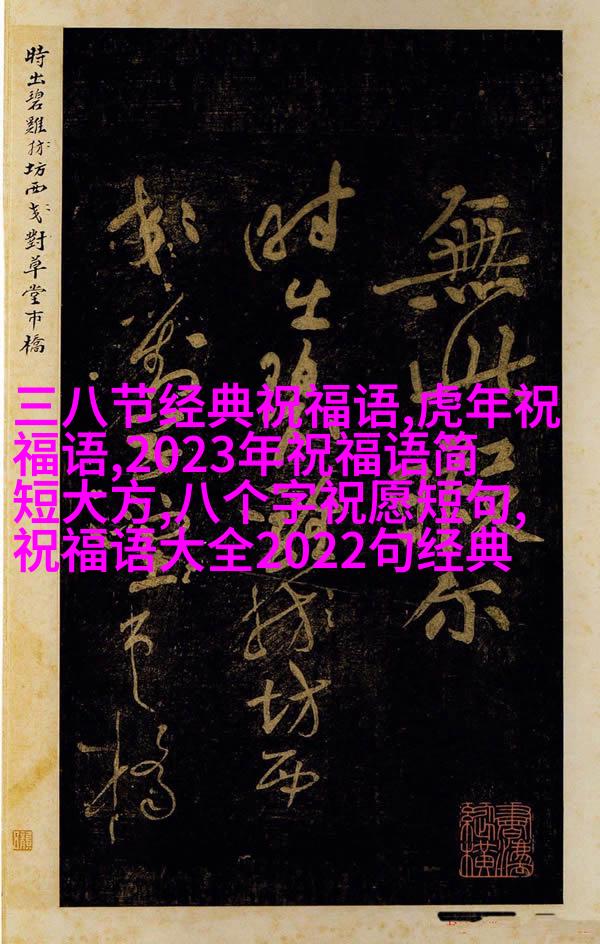 三八节经典祝福语,虎年祝
福语,2023年祝福语简
短大方,八个字祝愿短句,
祝福语大全2022句经典
無尔
時出碧坊西
草堂市橋
時出碧雞坊西對草堂市橋